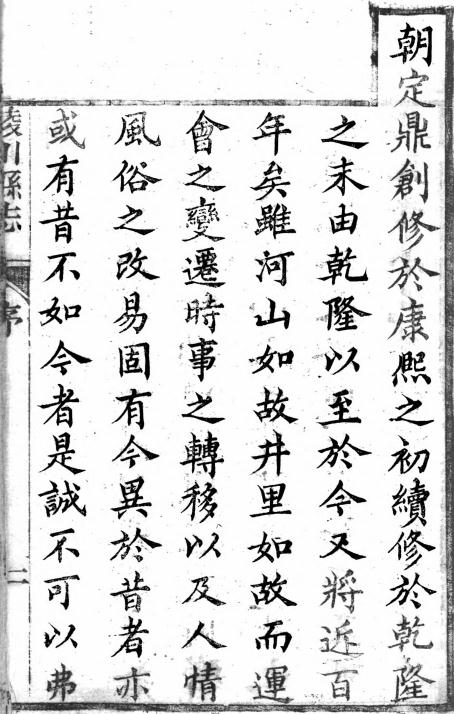 朝定鼎創修於康熙之初續修於乾隆
之末由乾隆以至於今又將近百
年矣雖河山如故井里如故而運
會之變遷時事之轉移以及人情
風俗之改易固有今異於昔者亦
或有昔不如今者是誠不可以弗
陵川縣志
序
二